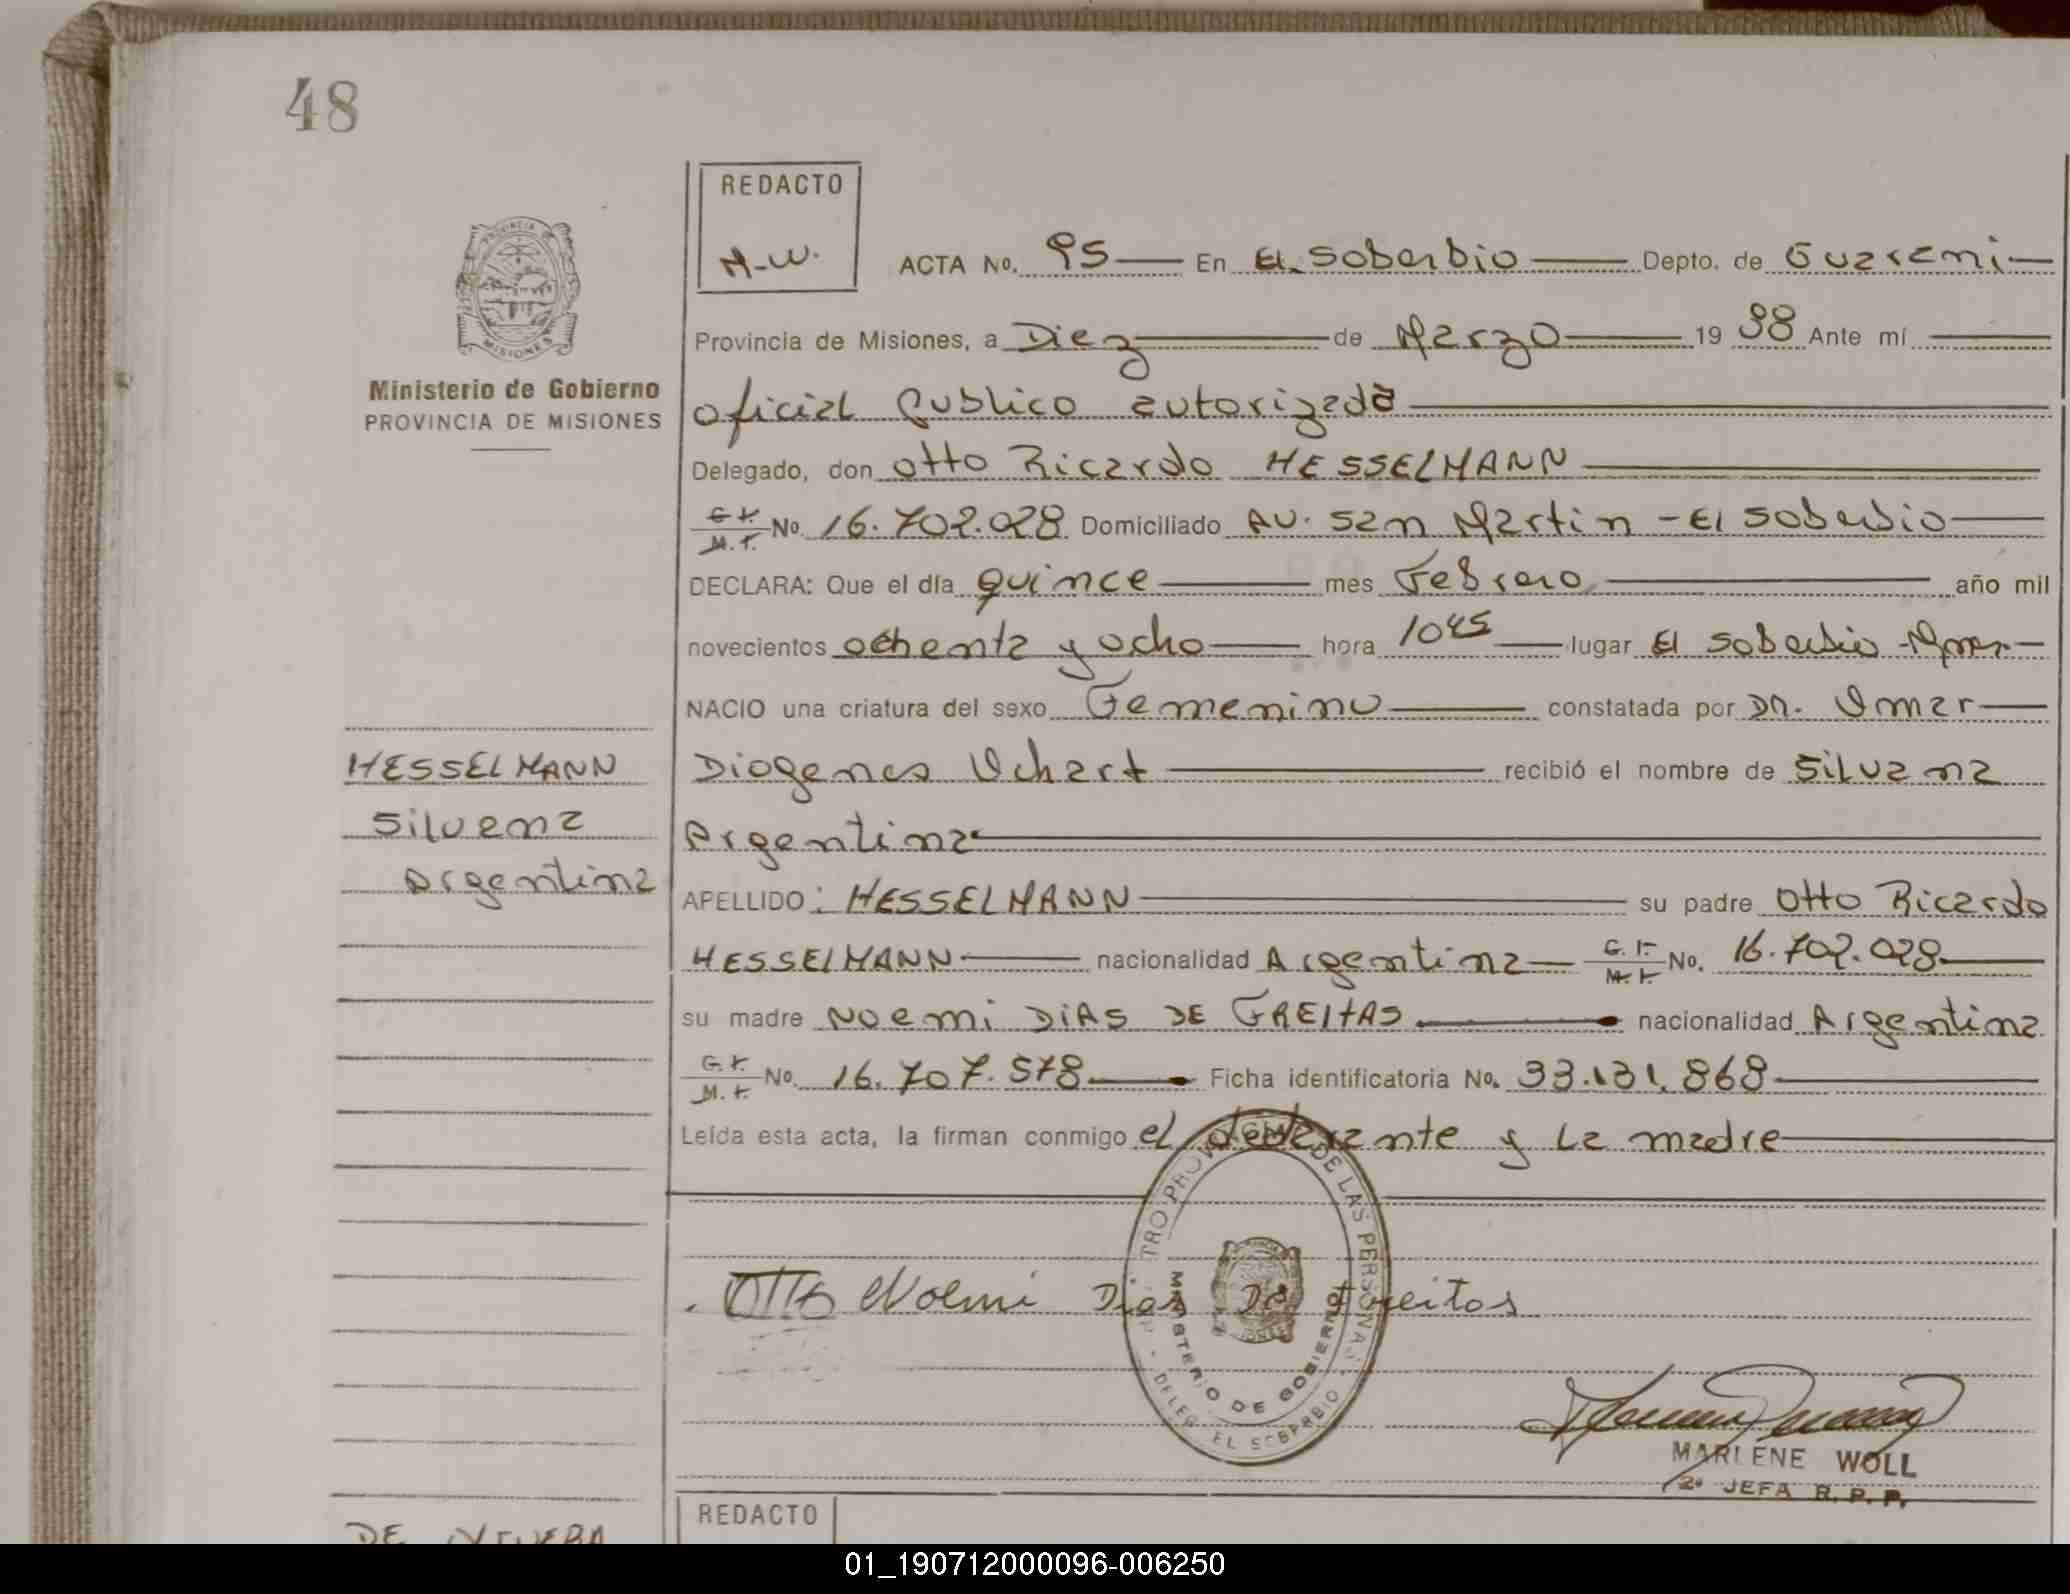 48
REDACTO
M-W.
ACTA No. 95 En El Soberbio Depto. de Guarani
Provincia de Misiones, a Diez de Marzo 19 88 Ante mí
oficial publico autorizada
Delegado, don Otto Ricardo HESSELMANN
C.I. M.I. No. 16.702.028 Domiciliado Av. San Martin - El Soberbio
DECLARA: Que el día quince mes Febrero año mil
novecientos ochenta y ocho hora 1045 lugar El Soberbio
NACIO una criatura del sexo Femenino constatada por Dr. Omar
Diogenes Uchart recibió el nombre de Silvana
Argentina
APELLIDO: HESSELMANN su padre Otto Ricardo
HESSELMANN nacionalidad Argentina C.I. M.I. No. 16.702.028
su madre Noemi DIAS DE FREITAS nacionalidad Argentina
C.I. M.I. No. 16.707.578 Ficha identificatoria No. 33.131.868
Leída esta acta, la firman conmigo el declarante y La madre
PROVINCIA DE MISIONES
Ministerio de Gobierno
PROVINCIA DE MISIONES
HESSELMANN
Silvana
Argentina
Otto Noemi Dias De Freitas
TRO PROVINCIAL DE LAS PERSONAS
MINISTERIO DE GOBIERNO
DELEG. EL SOBERBIO
MARLENE WOLL
2ª JEFA R. P. P.
REDACTO
DE
01_190712000096-006250